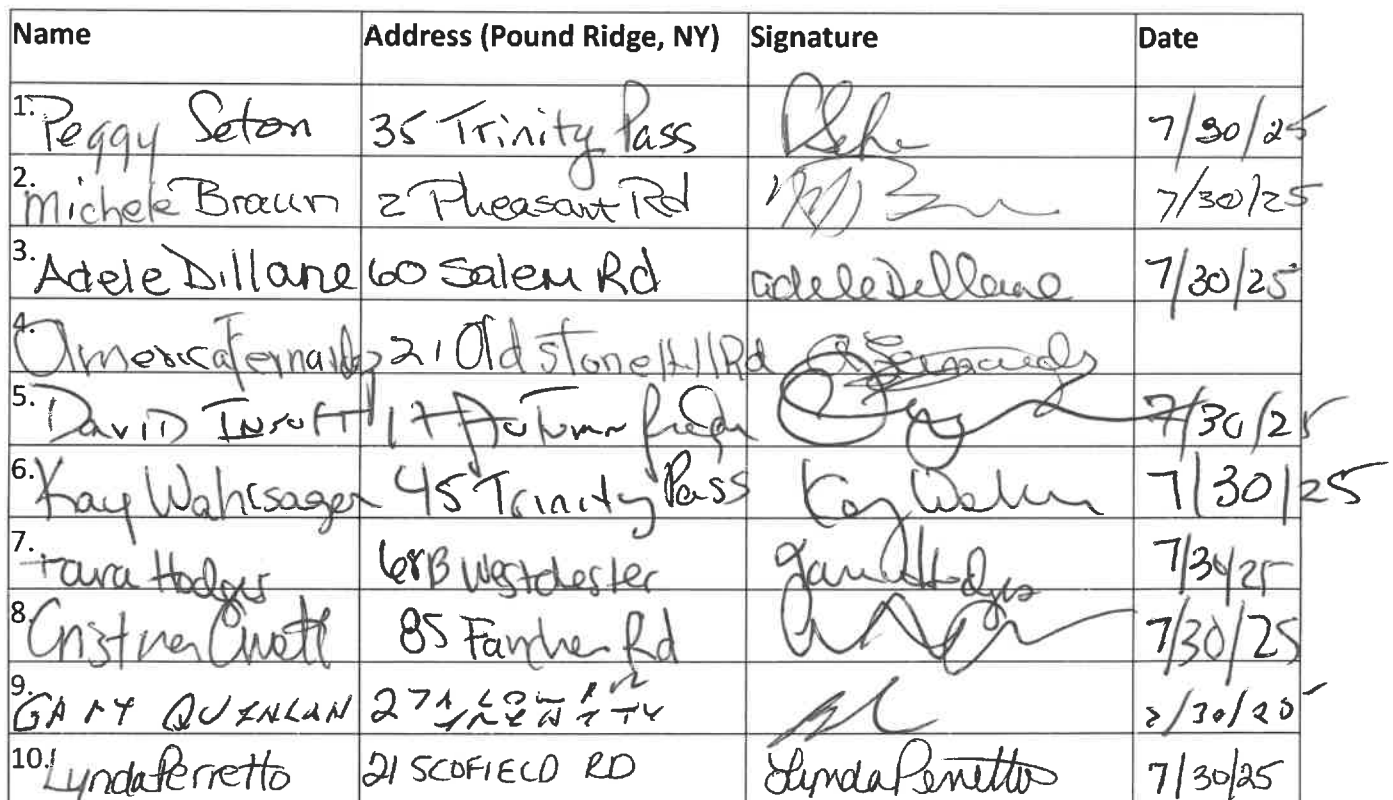 Name Address (Pound Ridge, NY) Signature Date
1. Peggy Seton 35 Trinity Pass 7/30/25
2. Michele Braun 2 Pheasant Rd 7/30/25
3. Adele Dillane 60 Salem Rd Adele Dillane 7/30/25
4. America Fernandez 21 Old Stone Hill Rd A Fernandez
5. David 17 Autumn Ridge 7/30/25
6. Kay Wahrsager 45 Trinity Pass Kay 7/30/25
7. Tara Hodges 68B Westchester Tara Hodges 7/30/25
8. 85 Fancher Rd 7/30/25
9. GARY QUINLAN 7/30/25
10. Lynda Perretto 21 SCOFIELD RD Lynda Perretto 7/30/25